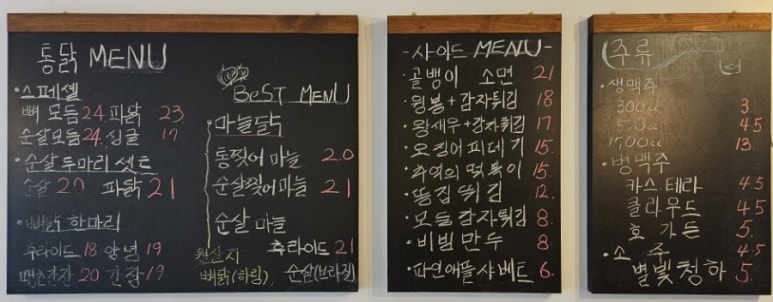 통닭 MENU
·스페셜
뼈 모듬 24 파닭 23
순살모듬 24 싱글 17
·순살두마리셋트
순살 20 파닭 21
·뼈닭 한마리
후라이드 18 양념 19
맥촌간간 20 간장 19
BEST MENU
·마늘닭
통찢어 마늘 20
순살찢어마늘 21
순살 마늘
후라이드 21
원산지
뼈닭(하림), 순살(브라질)
-사이드 MENU-
·골뱅이 소면 21
·윙봉+감자튀김 18
·왕새우+감자튀김 17
·오징어피데기 15
·추억의 떡볶이 15
·똥집 튀김 12
·모듬감자튀김 8
·비빔만두 8
·파인애플샤베트 6
주류
·생맥주
300cc 3
500cc 45
1700cc 13
·병맥주
카스.테라 45
클라우드 45
호가든 5
·소주 45
별빛청하 5